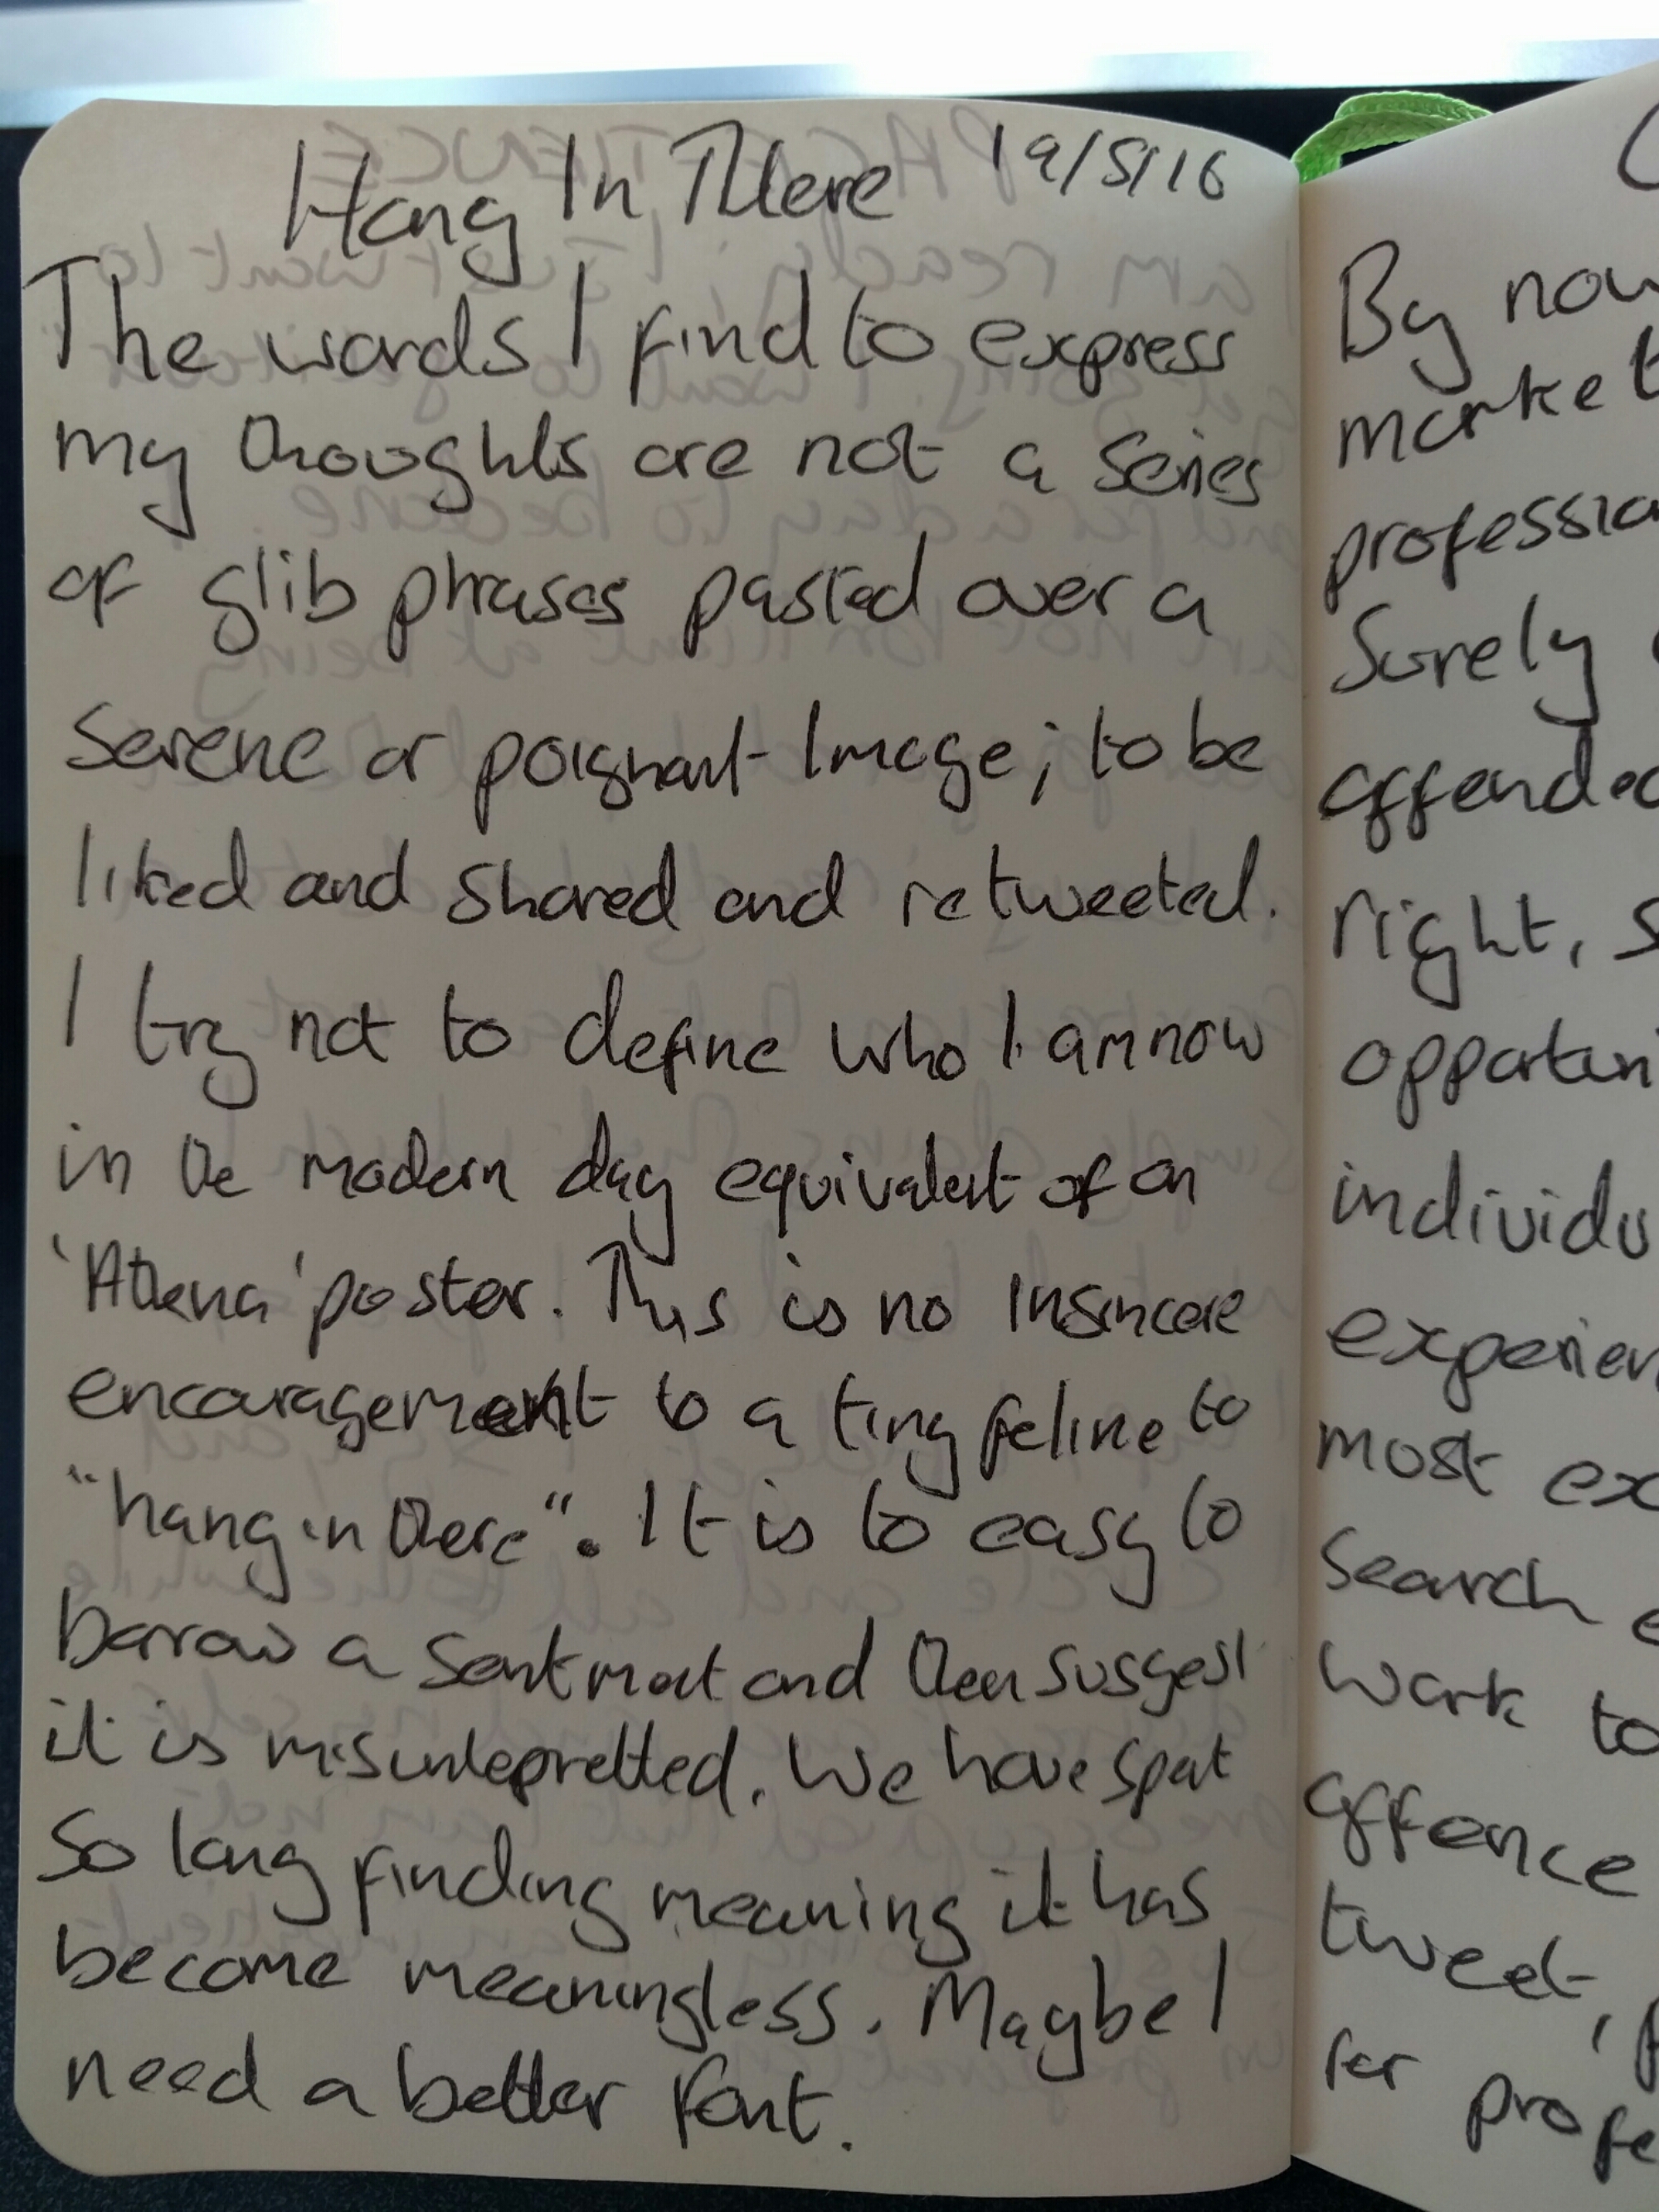 Hang In There 19/5/16
The words I find to express
my thoughts are not a series
of glib phrases pasted over a
serene or poignant Image; to be
liked and shared and retweeted.
I try not to define who I am now
in the modern day equivalent of an
'Athena' poster. This is no insincere
encouragement to a tiny feline to
"hang in there". It is to easy to
borrow a sentiment and then suggest
it is misinterpretted. We have spent
so long finding meaning it has
become meaningless. Maybe I
need a better font.
By now
market
professio
Surely
offended
right, s
opportuni
individu
experien
most ex
search
work to
offence
tweet,
for profe